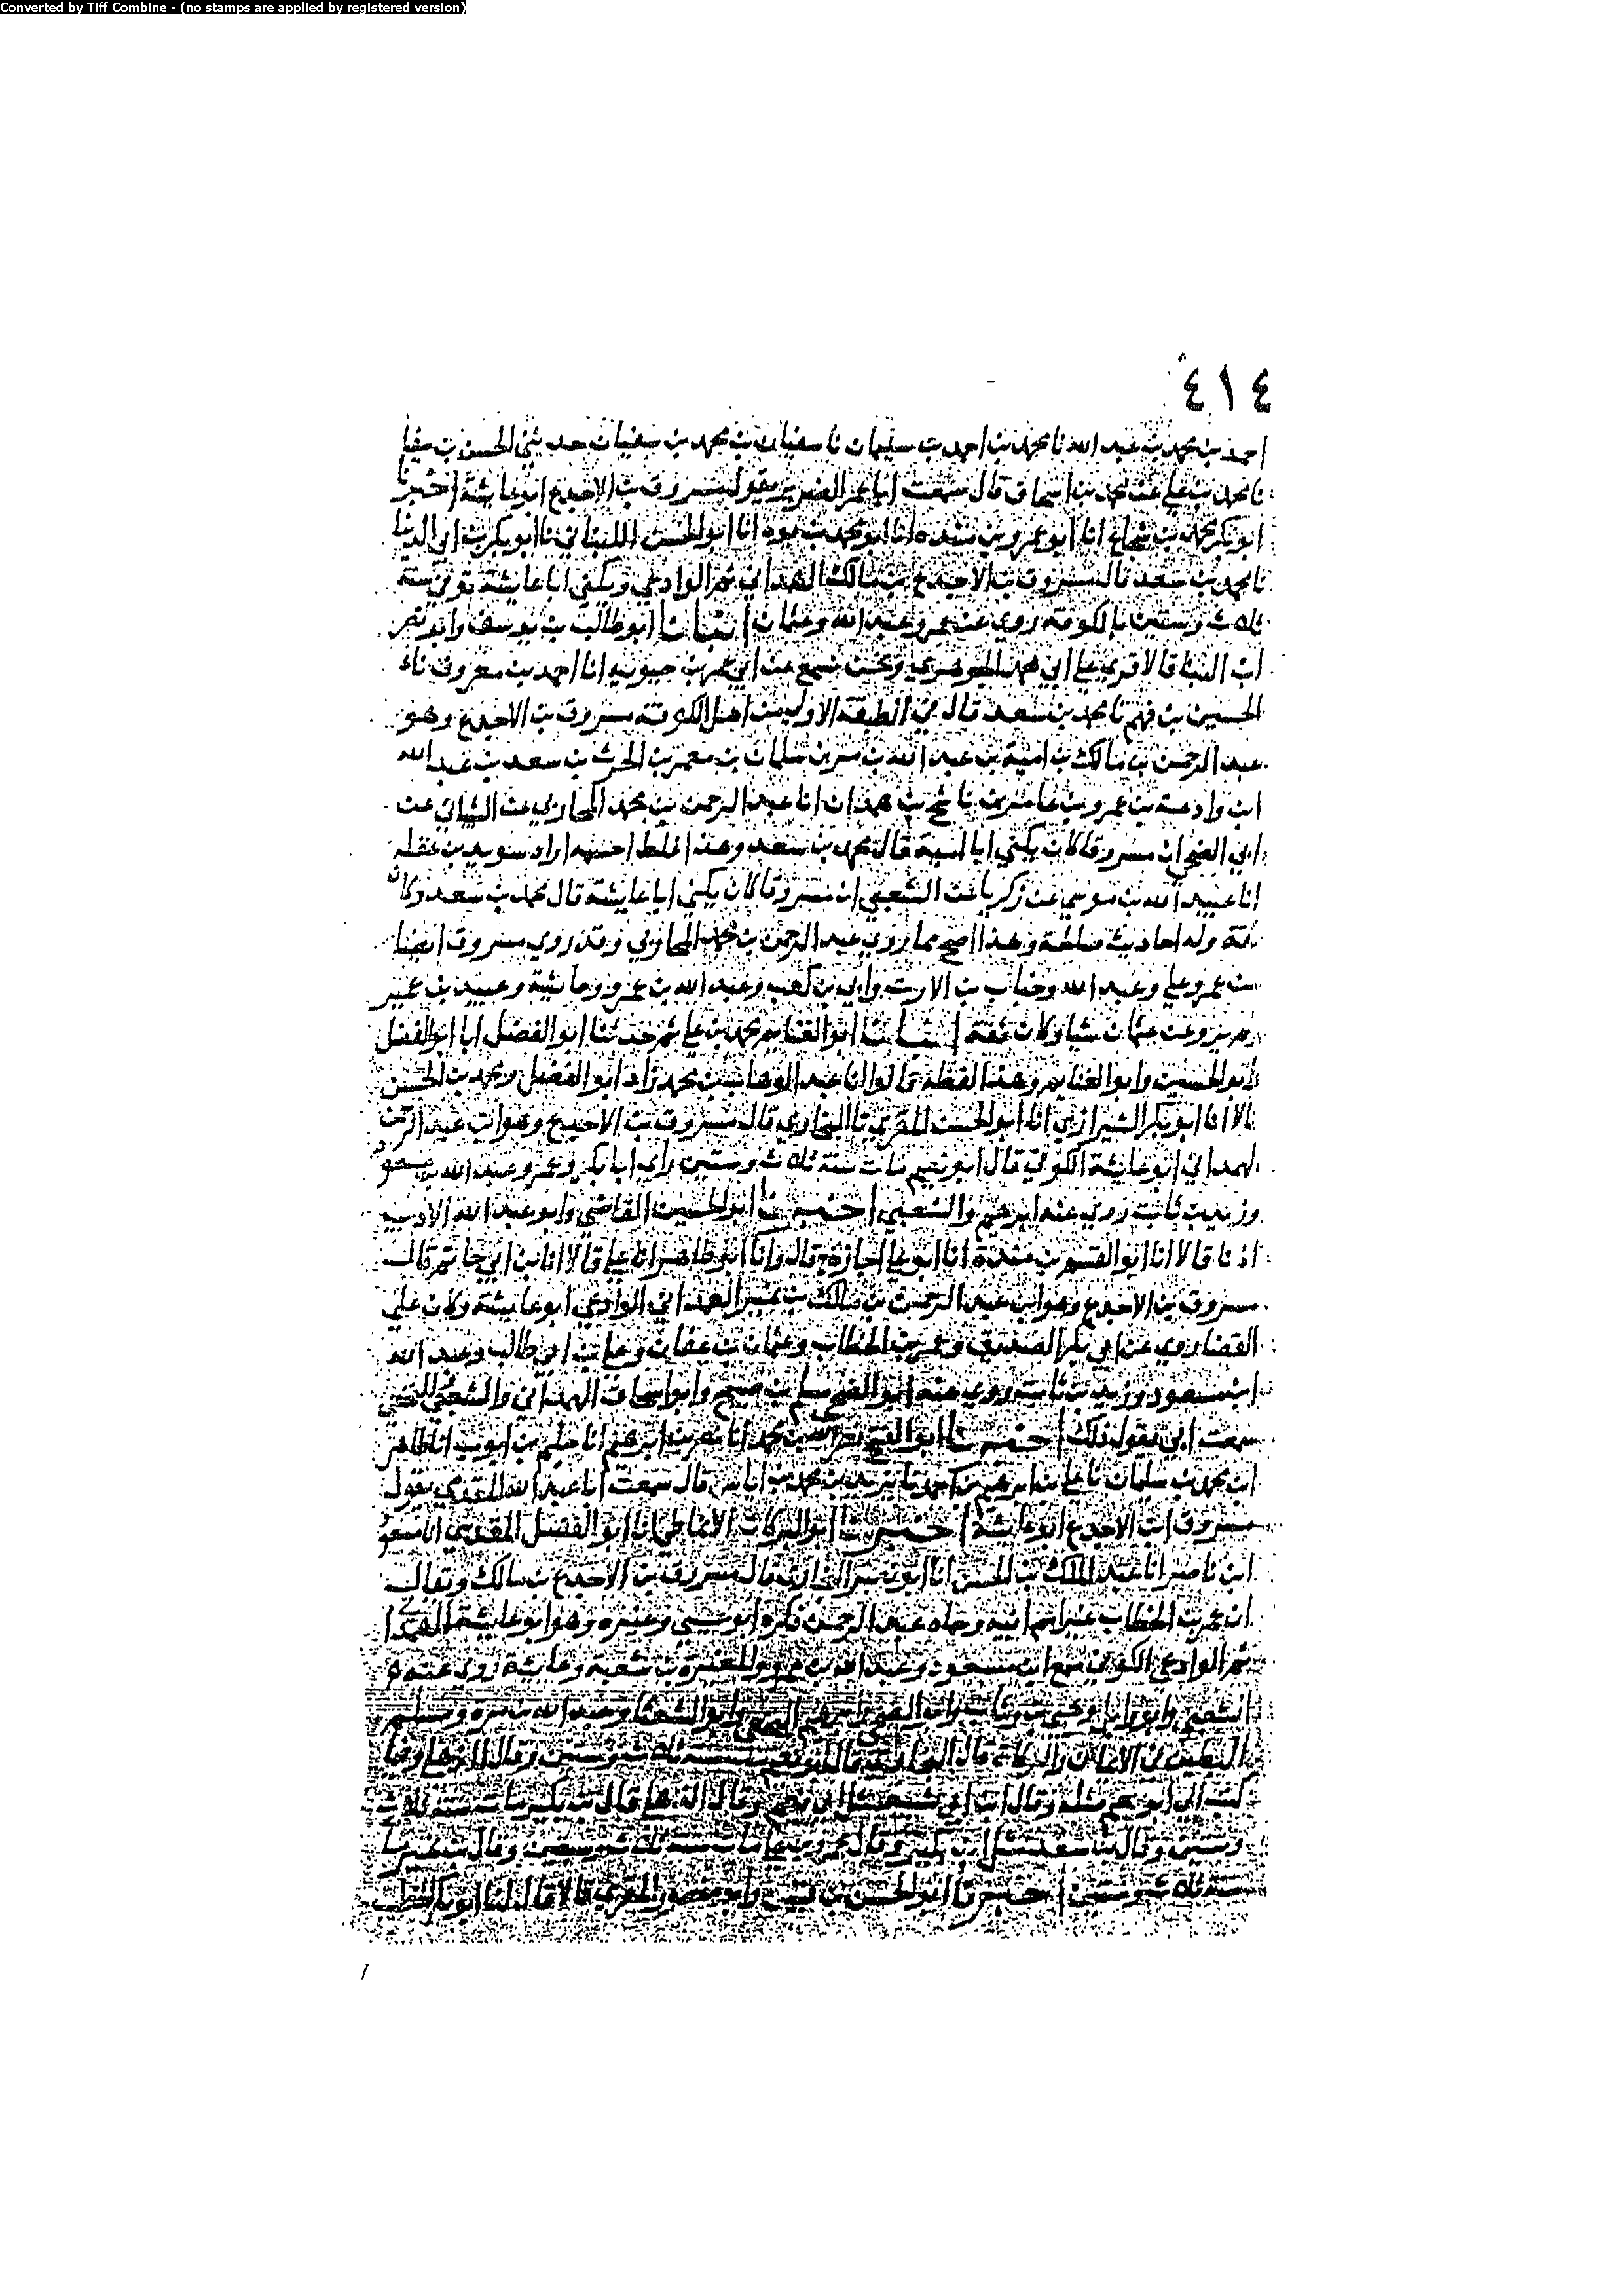 Converted by Tiff Combine - (no stamps are applied by registered version)
٤١٤
احمد بن محمد بن عبد الله نا محمد بن احمد بن سليمان نا سفيان بن محمد بن سفيان حدثني الحسن بن سفيا
نا محمد بن علي عن محمد بن اسحاق قال سمعت ابا عمر الضرير يقول مسروق بن الاجدع ابو عايشة اخبرنا
ابو بكر محمد بن شجاع انا ابو عمرو بن منده انا ابو محمد بن يوه انا ابو الحسن اللنباني نا ابو بكر بن ابي الدنيا
نا محمد بن سعد قال مسروق بن الاجدع بن مالك الهمداني ثم الوادعي ويكنى ابا عايشة توفي سنة
ثلاث وستين بالكوفة روى عن عمر وعبد الله وعثمان انبانا ابو طالب بن يوسف وابو نصر
ابن البنا قالا قري علي ابي محمد الجوهري ونحن نسمع عن ابي عمر بن حيويه انا احمد بن معروف نا
الحسين بن فهم نا محمد بن سعد قال في الطبقة الاولى من اهل الكوفة مسروق بن الاجدع وهو
عبد الرحمن بن مالك بن امية بن عبد الله بن مر بن سلمان بن معمر بن الحرث بن سعد بن عبد الله
ابن وادعة بن عمرو بن عامر بن ناشح بن همدان انا عبد الرحمن بن محمد المحاربي عن الشيباني عن
ابي الضحى ان مسروقا كان يكنى ابا امية قال محمد بن سعد وهذا غلط احسبه اراد سويد بن غفله
انا عبيد الله بن موسى عن زكريا عن الشعبي ان مسروقا كان يكنى ابا عايشة قال محمد بن سعد وكان
ثقة وله احاديث صالحة وهذا اصح مما روى عبد الرحمن بن محمد المحاربي وقد روى مسروق ايضا
عن عمر وعلي وعبد الله وخباب بن الارت وابي بن كعب وعبد الله بن عمرو وعايشة وعبيد بن عمير
ولم يرو عن عثمان شيا وكان ثقة انبانا ابو الغنايم محمد بن علي ثم حدثنا ابو الفضل انا ابو الفضل
وابو الحسين وابو الغنايم وهذا لفظه قالوا انا عبد الوهاب بن محمد زاد ابو الفضل ومحمد بن الحسن
قالا انا ابو بكر الشيرازي انا ابو الحسن المقري نا البخاري قال مسروق بن الاجدع وهو ابن عبد الرحمن
الهمداني ابو عايشة الكوفي قال ابو نعيم مات سنة ثلاث وستين راى ابا بكر وعمر وعبد الله بن مسعود
وزيد بن ثابت روى عنه ابرهيم والشعبي اخبرنا ابو الحسين القاضي وابو عبد الله الاديب
اذنا قالا انا ابو القسم بن منده انا ابو علي اجازة قال وانا ابو طاهر انا علي قالا انا بن ابي حاتم قال
مسروق بن الاجدع وهو ابن عبد الرحمن بن مالك بن نمير الهمداني الوادعي ابو عايشة وكان على
القضا روى عن ابي بكر الصديق وعمر بن الخطاب وعثمان بن عفان وعلي بن ابي طالب وعبد الله
ابن مسعود وزيد بن ثابت روى عنه ابو الضحى مسلم بن صبيح وابو اسحاق الهمداني والشعبي النخعي
سمعت ابي يقول ذلك اخبرنا ابو الفتح نصر الله بن محمد انا نصر بن ابرهيم انا سليم بن ايوب انا طاهر
ابن محمد بن سليمان نا علي بن ابرهيم بن احمد نا يزيد بن محمد بن اياس قال سمعت ابا عبد الله المقدمي يقول
مسروق ابن الاجدع ابو عايشة اخبرنا ابو البركات الانماطي انا ابو الفضل المقدسي انا مسعود
ابن ناصر انا عبد الملك بن الحسن انا ابو نصر البخاري قال مسروق بن الاجدع بن مالك ويقال
ان عمر بن الخطاب غير اسم ابيه وسماه عبد الرحمن ذكره ابو عيسى وغيره وهو ابو عايشة الهمدا
ثم الوادعي الكوفي سمع ابن مسعود وعبد الله بن عمرو والمغيرة بن شعبة وعايشة روى عنه
الشعبي وابو وايل ويحيى بن وثاب وابو الضحى وابرهيم النخعي وابو الشعثا وعبد الله بن مرة ومسلم
البطين في الايمان والزكاة قال البخاري قال ابو نعيم مات سنة ثلاث وستين وقال
كتب الي ابو نعيم مثله وقال ابن ابي شيبة مثل ابي نعيم وقال الذهلي قال بن بكير مات سنة ثلاث
وستين وقال بن سعد مثل ابن بكير وقال عمرو بن علي مات سنة ثلاث وستين وقال بن نمير مات
سنة ثلاث وستين اخبرنا ابو الحسن بن قبيس وابو منصور المقري قالا قال لنا ابو بكر الخطيب